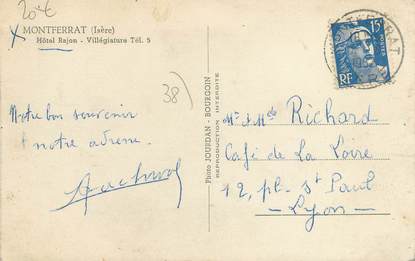 20€
X MONTFERRAT (Isère)
Hôtel Rajon - Villégiature Tél. 5
38)
Notre bon souvenir
notre adresse.
Photo JOURDAN - BOURGOIN
REPRODUCTION INTERDITE
15F
RF
POSTES
Mr & Mde Richard
Café de La Loire
12, pl. St Paul
- Lyon -